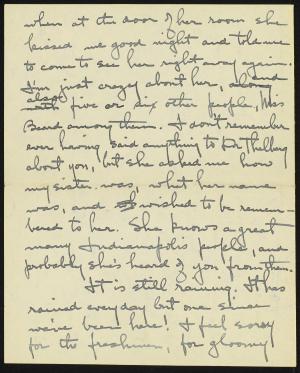 when at the door of her room she
kissed me good night and told me
to come to see her right away again.
I'm just crazy about her, and
also five or six other people, Miss
Beard among them. I don't remember
ever having said anything to Dr. Thelberg
about you, but she asked me how
my sister was, what her name
was, and wished to be remem-
bered to her. She knows a great
many Indianapolis people, and
probably she's heard of you from them.
It is still raining. It has
rained every day but one since
we've been here! I feel sorry
for the freshmen, for gloomy